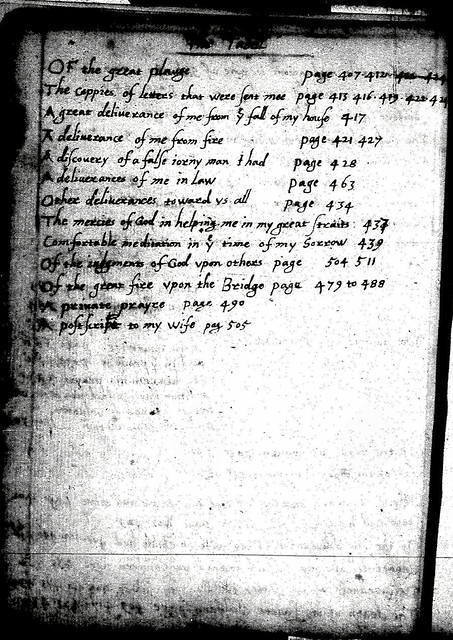 The Tabel
OF the great plauge page 407 · 412 ·
The Coppies of letters that were sent mee page 413 416 · 419 · 422 · 42
A great deliverance of me from ẏ fall of my house 417
A deliverance of me from fire page 421 427
A discovery of a false iorny man I had page 428 ·
A deliverances of me in Law page 463
Other deliverances toward vs all page 434
The mercies of God in helping me in my great straits 437
Comfortable meditation in ẏ time of my Sorrow 439
Of the iudgments of God vpon others page 504 511
Of the great fire vpon the Bridge page 479 to 488
A private prayre page 490
A postscript to my wife pag 505